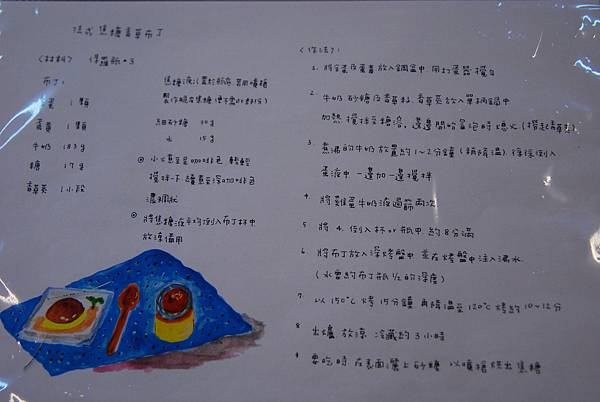 法式焦糖香草布丁
〈材料〉 保羅瓶*3
布丁:
蛋 1顆
蛋黃 1顆
牛奶 183g
糖 27g
香草莢 1小段
焦糖液(置於瓶底,若用噴槍
製作脆皮焦糖便不需此部分)
細砂糖 30g
水 15g
◎ 小火煮至呈咖啡色 輕輕
攪拌一下,續煮至深咖啡色
濃稠狀
◎ 將焦糖液平均倒入布丁杯中
放涼備用
〈作法〉:
1. 將全蛋及蛋黃放入鋼盆中,用打蛋器攪勻
2. 牛奶,砂糖及香草籽、香草莢放入單柄鍋中
加熱,攪拌至糖溶,邊邊開始冒泡時熄火(撈起香草莢)
3. 煮沸的牛奶放置約1~2分鐘(稍降溫),徐徐倒入
蛋液中,一邊加一邊攪拌
4. 將雞蛋牛奶液過篩兩次
5. 將4.倒入杯or瓶中,約8分滿
6. 將布丁放入深烤盤中,並在烤盤中注入沸水
(水要約布丁瓶1/2的深度)
7. 以150°C烤15分鐘,再降溫至120°C烤約10~12分
8. 出爐,放涼,冷藏約3小時
9. 要吃時,在表面灑上砂糖,以噴槍烘出焦糖